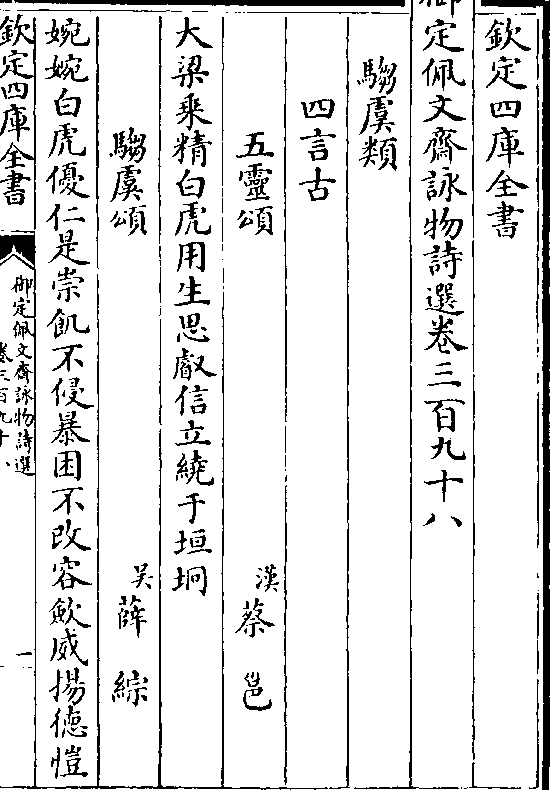 欽定四庫全書
御定佩文齋詠物詩選卷三百九十八
騶虞類
四言古
五靈頌
漢蔡邕
大梁乘精白虎用生思叡信立繞于垣坰
騶虞頌
吴薛綜
婉婉白虎優仁是崇飢不侵暴困不改容歛威揚德愷
欽定四庫全書
御定佩文齋詠物詩選
卷三百九十八
一